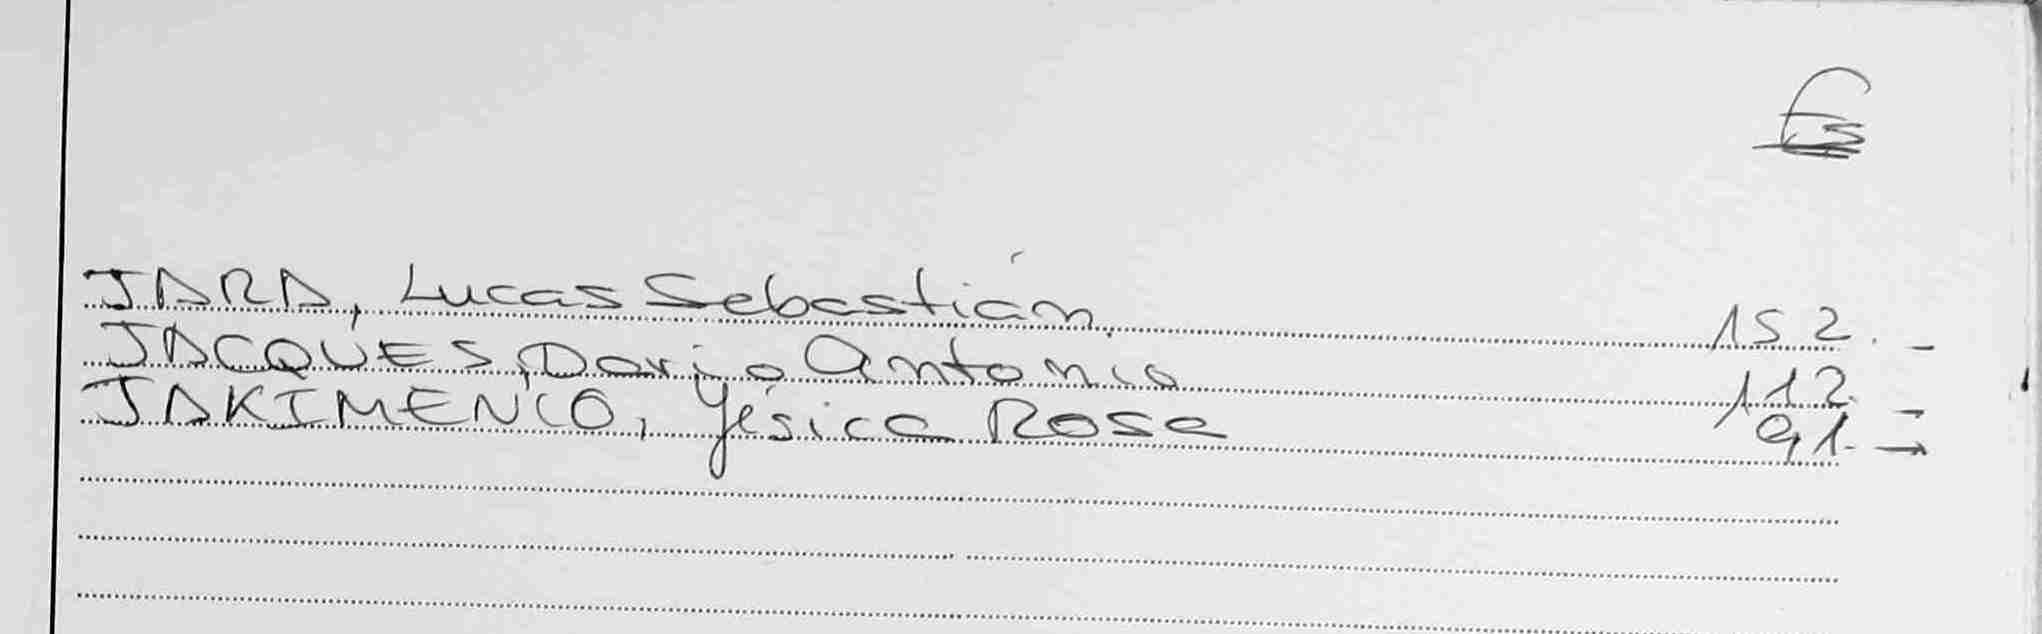 Fs
JARA, Lucas Sebastián. 152. -
JACQUES, Dario Antonio 112. -
JAKIMENCO, Yésica Rosa 91. -